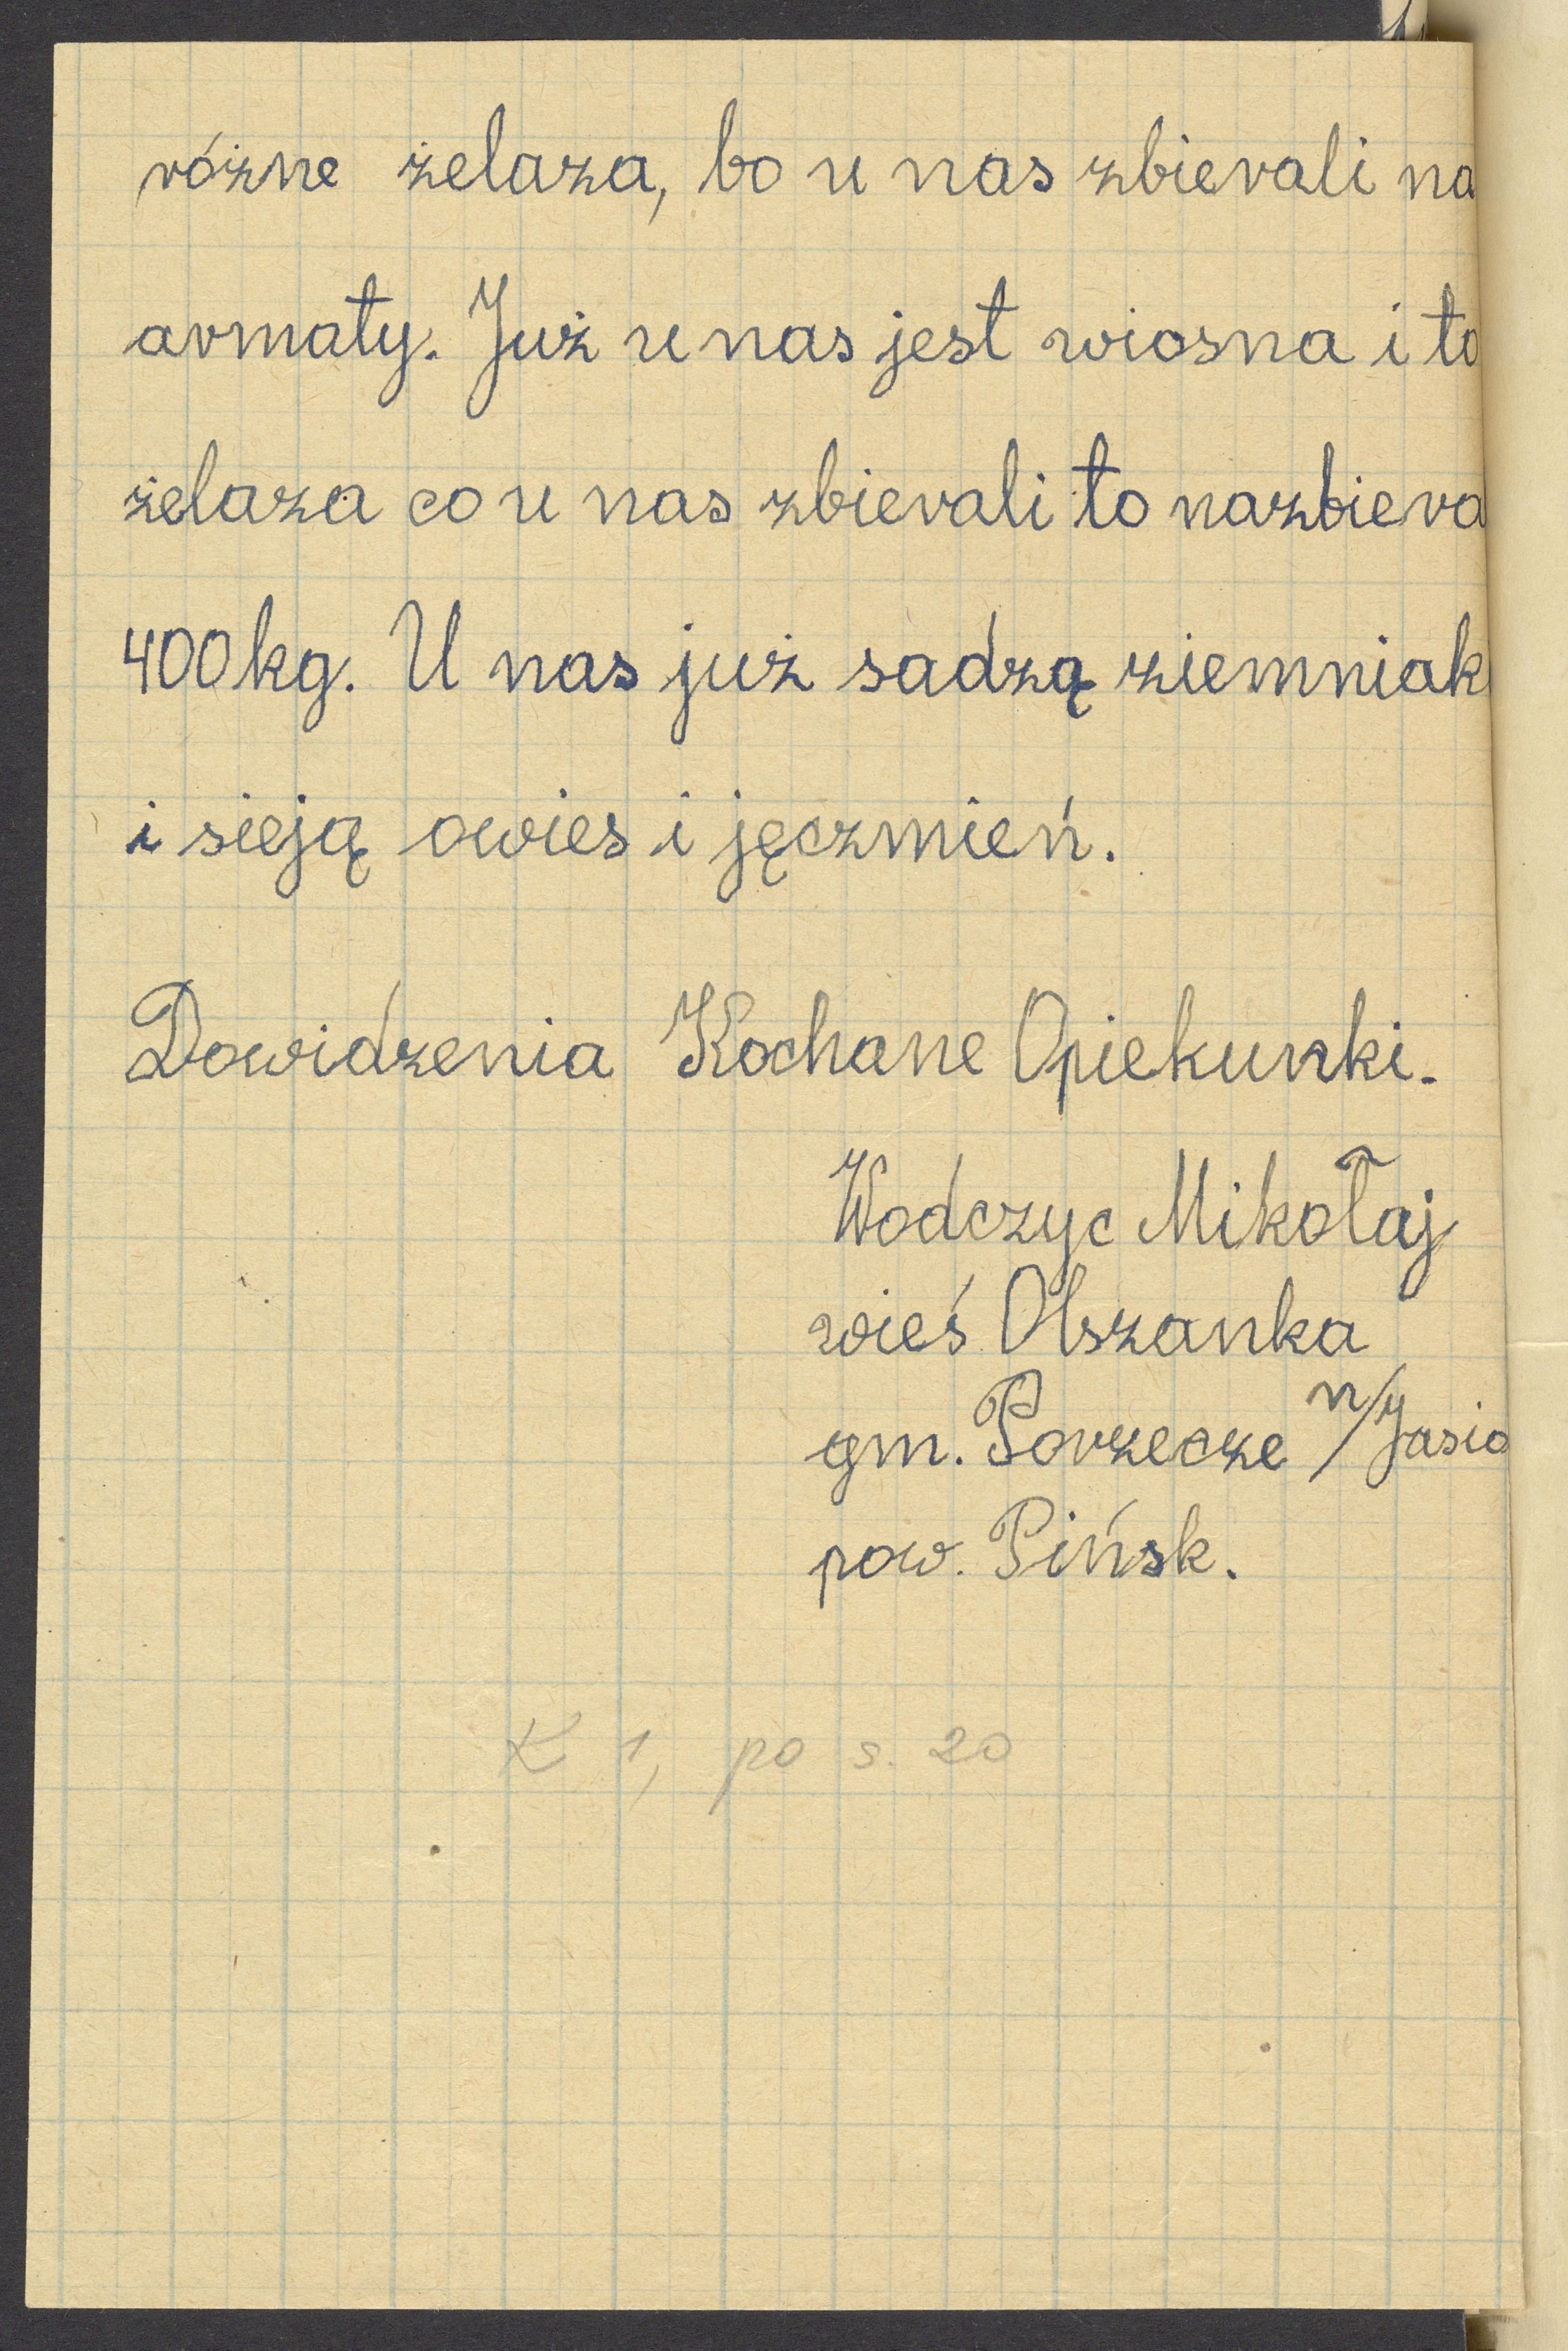 różne żelaza, bo u nas zbierali na
armaty. Już u nas jest wiosna i to
żelaza co u nas zbierali to nazbiera
400 kg. U nas już sadzą ziemniaki
i sieją owies i jęczmień.
Dowidzenia Kochane Opiekunki.
Wodczyc Mikołaj
wieś Olszanka
gm. Porzecze n/Jasio
pow. Pińsk.
K 1, po s. 20